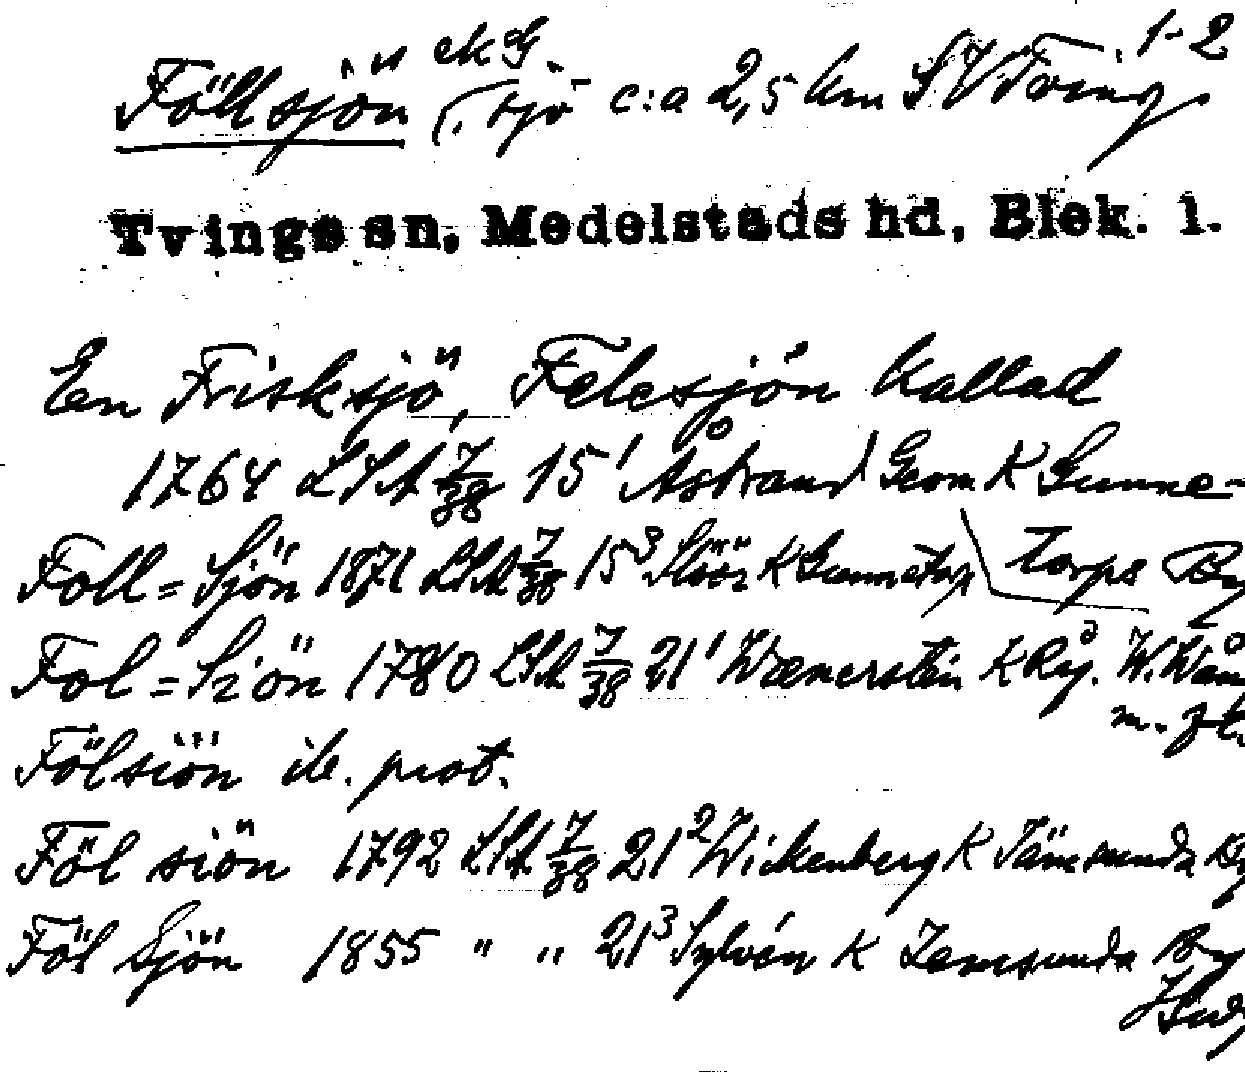 Föllsjön ekG. (sjö c:a 2,5 km SV Tving. 1-2
Tvings sn, Medelstads hd, Blek. l.
En Frisksjö, Felesjön kallad
1764 LSA 7/38 15¹ Åstrand Geom K Gunne-
torps By
Foll=Sjön 1871 LSA 7/38 15³ Slöör K Gunnetorp
Fol=Siön 1780 LSA 7/38 21¹ Wænerstein K Rå.
m. fl.
Fölsiön ib. prot.
Föl siön 1792 LSA 7/38 21² Wickenberg K Tämsunda By
Föl Sjön 1855 " " 21³ Sylvén K Temsunda By